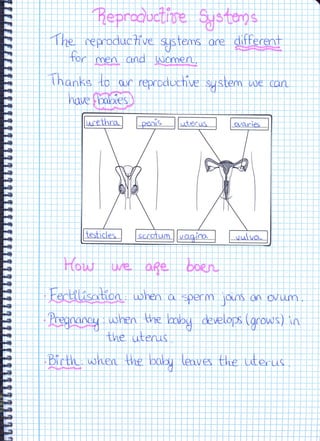 Reproductive Systems
The reproductive systems are different
for men and women.
Thanks to our reproductive system we can
have babies
urethra penis uterus ovaries
testicles scrotum vagina vulva
How we are born
· Fertilisation: when a sperm joins an ovum.
· Pregnancy: when the baby develops (grows) in
the uterus.
· Birth: when the baby leaves the uterus.